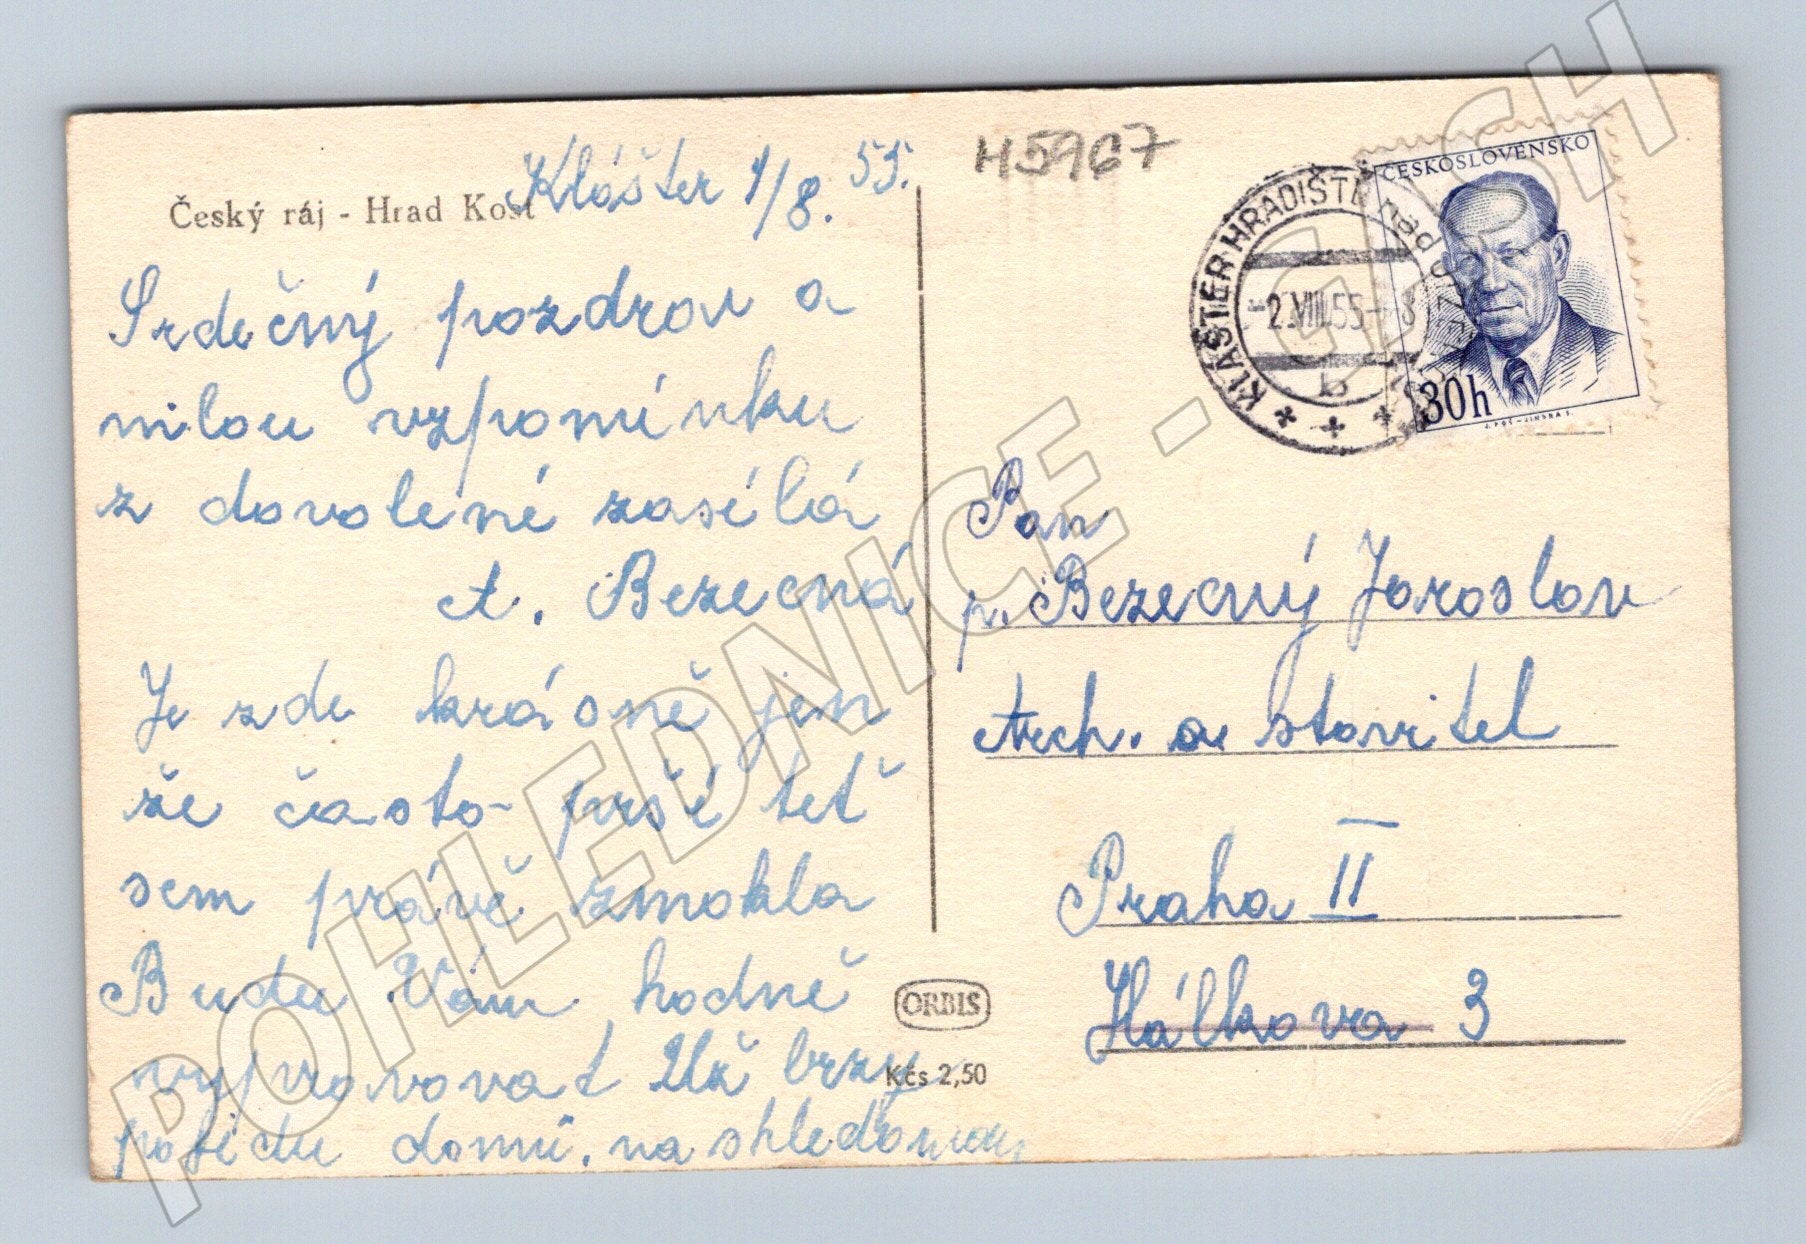 Český ráj - Hrad Kost
Klášter 1/8. 55.
Srdečný pozdrav a
milou vzpomínku
z dovolené zasílá
A. Bezecná
Je zde krásně jen
že často prší teť
sem právě zmokla
Budu Vám hodně
vypravovat Už brzy
pojedu domů, na shledanou
H5967
KLÁŠTER HRADIŠTĚ nad JIZEROU
-2.VIII.55- 8
b
ČESKOSLOVENSKO
30h
J. POŠ - JINDRA S.
Pan
p. Bezecný Jaroslav
Arch. a stavitel
Praha II
Hálkova 3
ORBIS
Kčs 2,50
POHLEDNICE - CASH